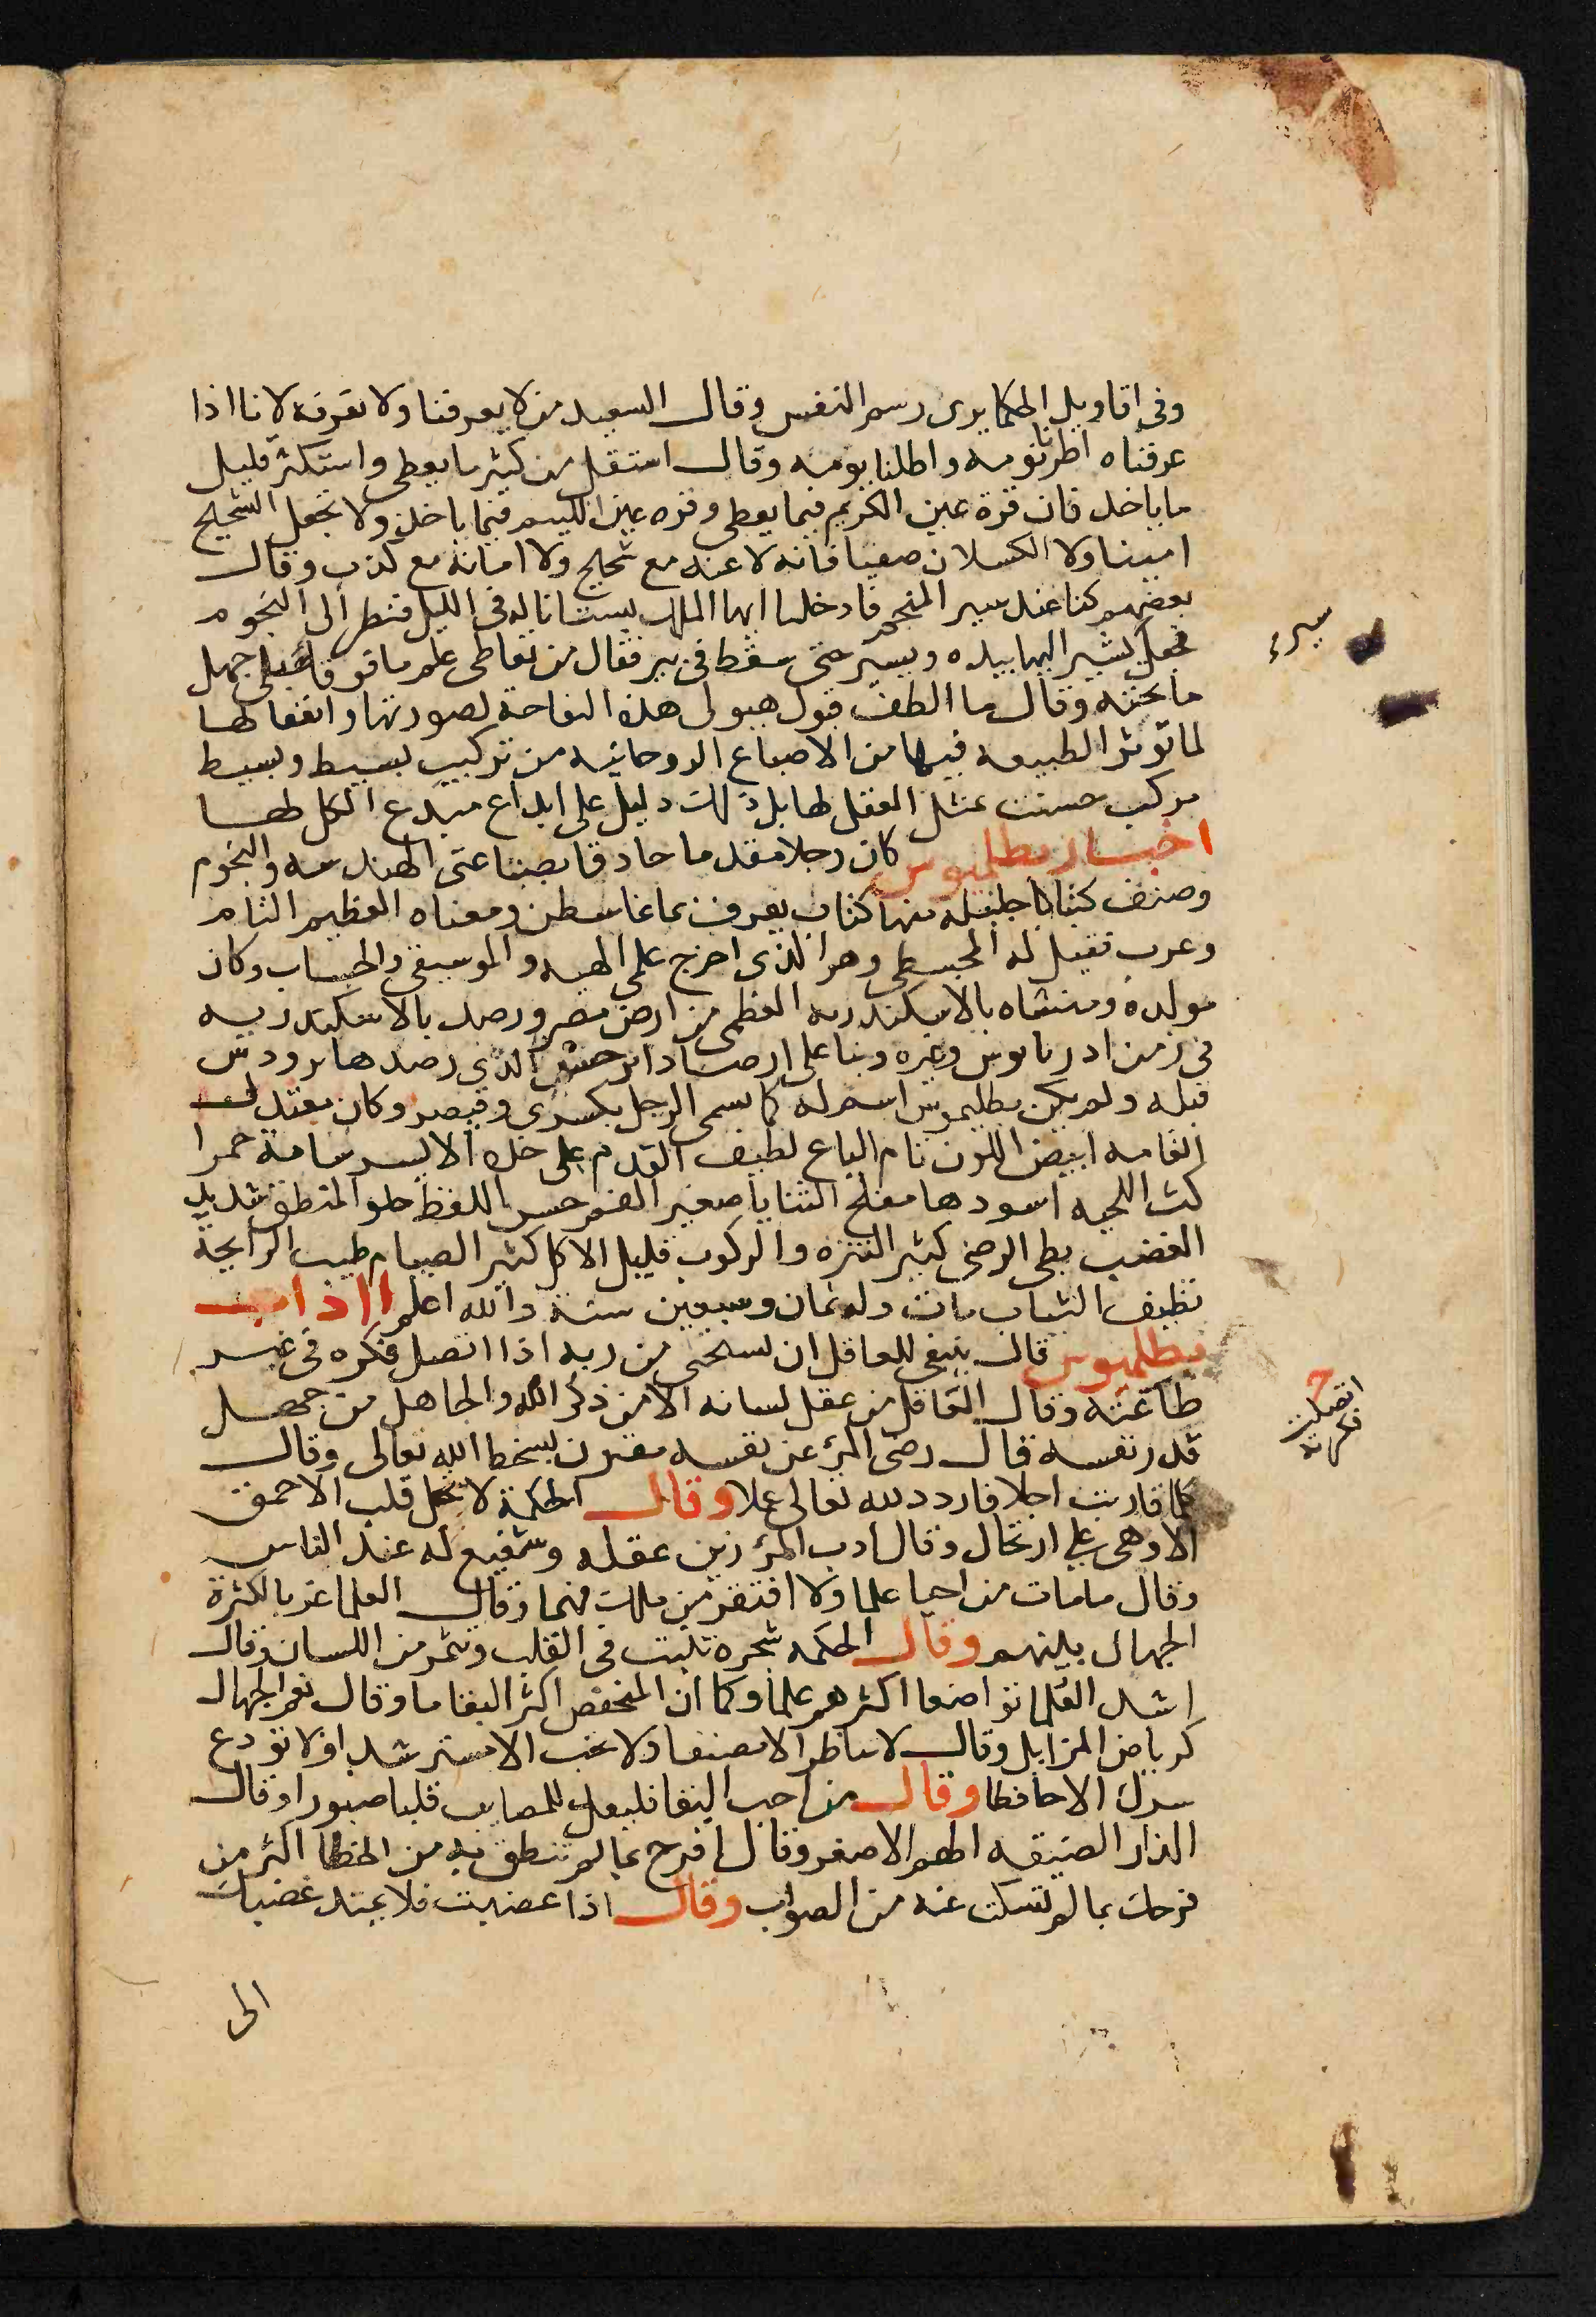 وفى اقاويل الحكما يرى رسم النفس وقال السعيد من لا يعرفنا ولا نعرفه لانا اذا
عرفناه اطرنا نومه واطلنا يومه وقال استقل من كثير ما يعطى واستكثر قليل
ما ياخذ فان قرة عين الكريم فيما يعطى وقره عين اللييم فيما ياخذ ولا تجعل الشحيح
امينا ولا الكسلان صفيا فانه لا عفه مع شحيح ولا امانة مع كذب وقال
بعضهم كنا عند المنجم فادخلنا ايها الملك بستانا له فى الليل فنظر الى النجوم
فجعل يشير اليها بيده ويسير حتى سقط فى بير فقال من تعاطى علم ما فوقه بلى جهل
ما تحته وقال ما الطف قبول هيولى هذه التفاحة لصورتها وانفعالها
لما توثر الطبيعه فيها من الاصباغ الروحانيه من تركيب بسيط وبسيط
مركب حسنت عثل العقل لها بل ذلك دليل على ابداع مبدع الكل لها
اخبار بطلميوس كان رجلا مقدما حاذقا بصناعتى الهندسه والنجوم
وصنف كتبا جليله منها كتاب يعرف بماغاسطن ومعناه العظيم التام
وعرب فقيل له المجسطى وهو الذى اخرج علمى الهيه والموسيقى والحساب وكان
مولده ومنشاه بالاسكندريه العظمى من ارض مصر ورصد بالاسكندريه
فى زمن ادريانوس وغيره وبنا على ارصاد ابرخس الذى رصدها برودس
قبله ولم يكن بطليموس اسم له كما يسمى الرجل بكسرى وقيصر وكان معتدل
القامه ابيض اللون تام الباع لطيف القدم على خده الايسر شامة حمرا
كث اللحيه اسودها مفلج الثنايا صغير الفم حسن اللفظ حلو المنطق شديد
الغضب بطى الرضى كثير التنزه والركوب قليل الاكل كثير الصيام طيب الرايحة
نظيف الثياب مات وله ثمان وسبعين سنة والله اعلم ااداب
بطلميوس قال ينبغى للعاقل ان يستحى من ربه اذا اتصل فكره فى غير
طاعته وقال العاقل من عقل لسانه الا من ذكر الله والجاهل من جهل
قدر نفسه قال رضى المرء عن نفسه مقرن بسخط الله تعالى وقال
كلما قاربت اجلا فازدد لله تعالى عملا وقال الحكمة لا تحل قلب الاحمق
الا وهى على ارتحال وقال ادب المرء زين عقله وشفيع له عند الناس
وقال ما مات من احيا علما ولا افتقر من ملك فهما وقال العلما غربا لكثرة
الجهال بينهم وقال الحكمه شجره تنبت فى القلب وتثمر من اللسان وقال
اشد العلما تواضعا اكثرهم علما وكما ان المنخفض اكثر البقا ما وقال نعم الجهال
كرياض المزابل وقال لا تناظر الا منصفا ولا تجب الا مسترشدا ولا تودع
سرك الا حافظا وقال من احب البقا فليعد للمصايب قلبا صبورا وقال
الدار الضيقه الهم الاصغر وقال افرح بما لم تنطق به من الخطا اكثر من
فرحك بما لم تسكت عنه من الصواب وقال اذا غضبت فلا يمتد غضبك
اتصلت
فكرته
الى